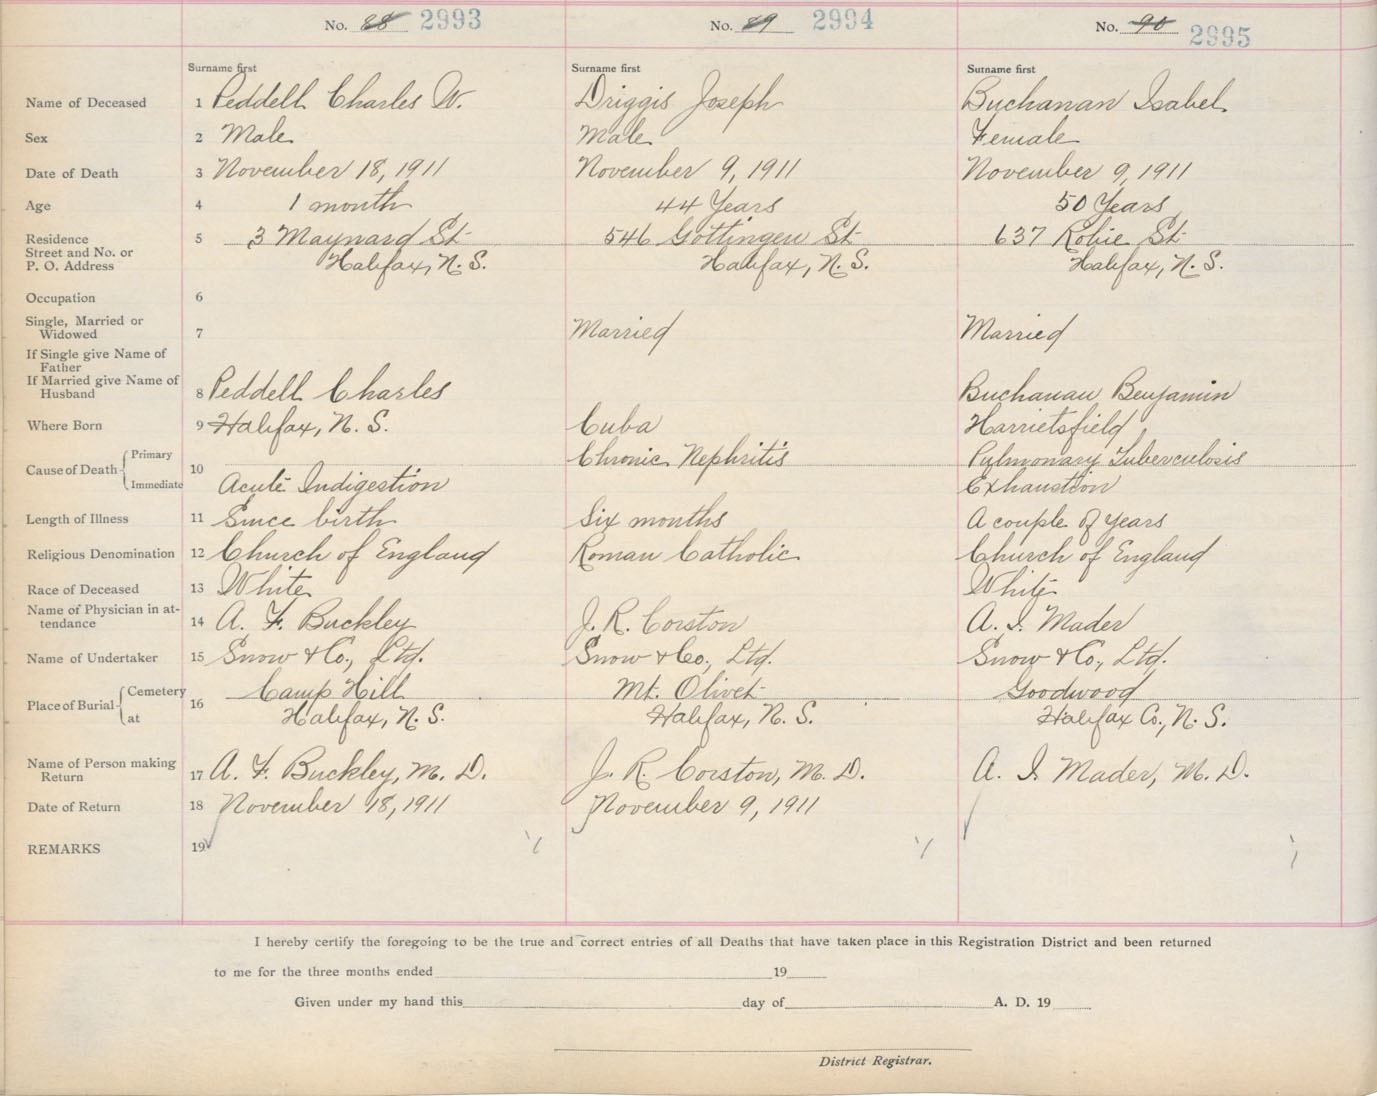 No. 88 2993 No. 89 2994 No. 90 2995
Surname first Surname first Surname first
Name of Deceased 1 Peddell Charles W. Driggis Joseph Buchanan Isabel
Sex 2 Male Male Female
Date of Death 3 November 18, 1911 November 9, 1911 November 9, 1911
Age 4 1 month 44 Years 50 Years
Residence 5 3 Maynard St 546 Gottingen St 637 Robie St
Street and No. or
P. O. Address Halifax, N. S. Halifax, N. S. Halifax, N. S.
Occupation 6
Single, Married or
Widowed 7 Married Married
If Single give Name of
Father
If Married give Name of
Husband 8 Peddell Charles Buchanan Benjamin
Where Born 9 Halifax, N. S. Cuba Harrietsfield
Cause of Death 10 Primary Chronic Nephritis Pulmonary Tuberculosis
Immediate Acute Indigestion Exhaustion
Length of Illness 11 Since birth Six months A couple of years
Religious Denomination 12 Church of England Roman Catholic Church of England
Race of Deceased 13 White White
Name of Physician in at-
tendance 14 A. F. Buckley J. R. Corston A. I. Mader
Name of Undertaker 15 Snow & Co., Ltd. Snow & Co., Ltd. Snow & Co., Ltd.
Place of Burial 16 Cemetery Camp Hill Mt. Olivet Goodwood
at Halifax, N. S. Halifax, N. S. Halifax Co., N. S.
Name of Person making
Return 17 A. F. Buckley, M. D. J. R. Corston, M. D. A. I Mader, M. D.
Date of Return 18 November 18, 1911 November 9, 1911
REMARKS 19
I hereby certify the foregoing to be the true and correct entries of all Deaths that have taken place in this Registration District and been returned
to me for the three months ended 19
Given under my hand this day of A. D. 19
District Registrar.